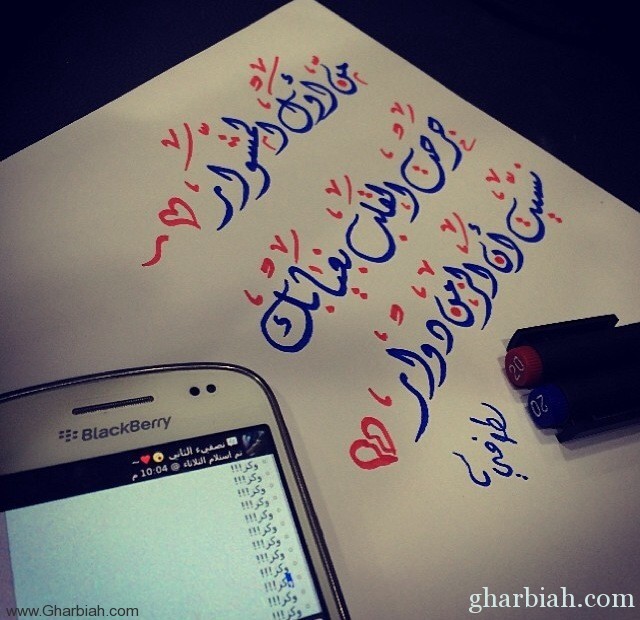 من أول المشوار
جرحت القلب بغيابك
نسيت أن الزمن دوار
لطوفي
20
20
BlackBerry
نصفيء الثاني
تم استلام الثلاثاء @ 10:04 م
وكر!!!
وكر!!!
وكر!!!
وكر!!!
وكر!!!
وكر!!!
وكر!!!
وكر!!!
وكر!!!
وكر!!!
وكر!!!
www.Gharbiah.com
gharbiah.com